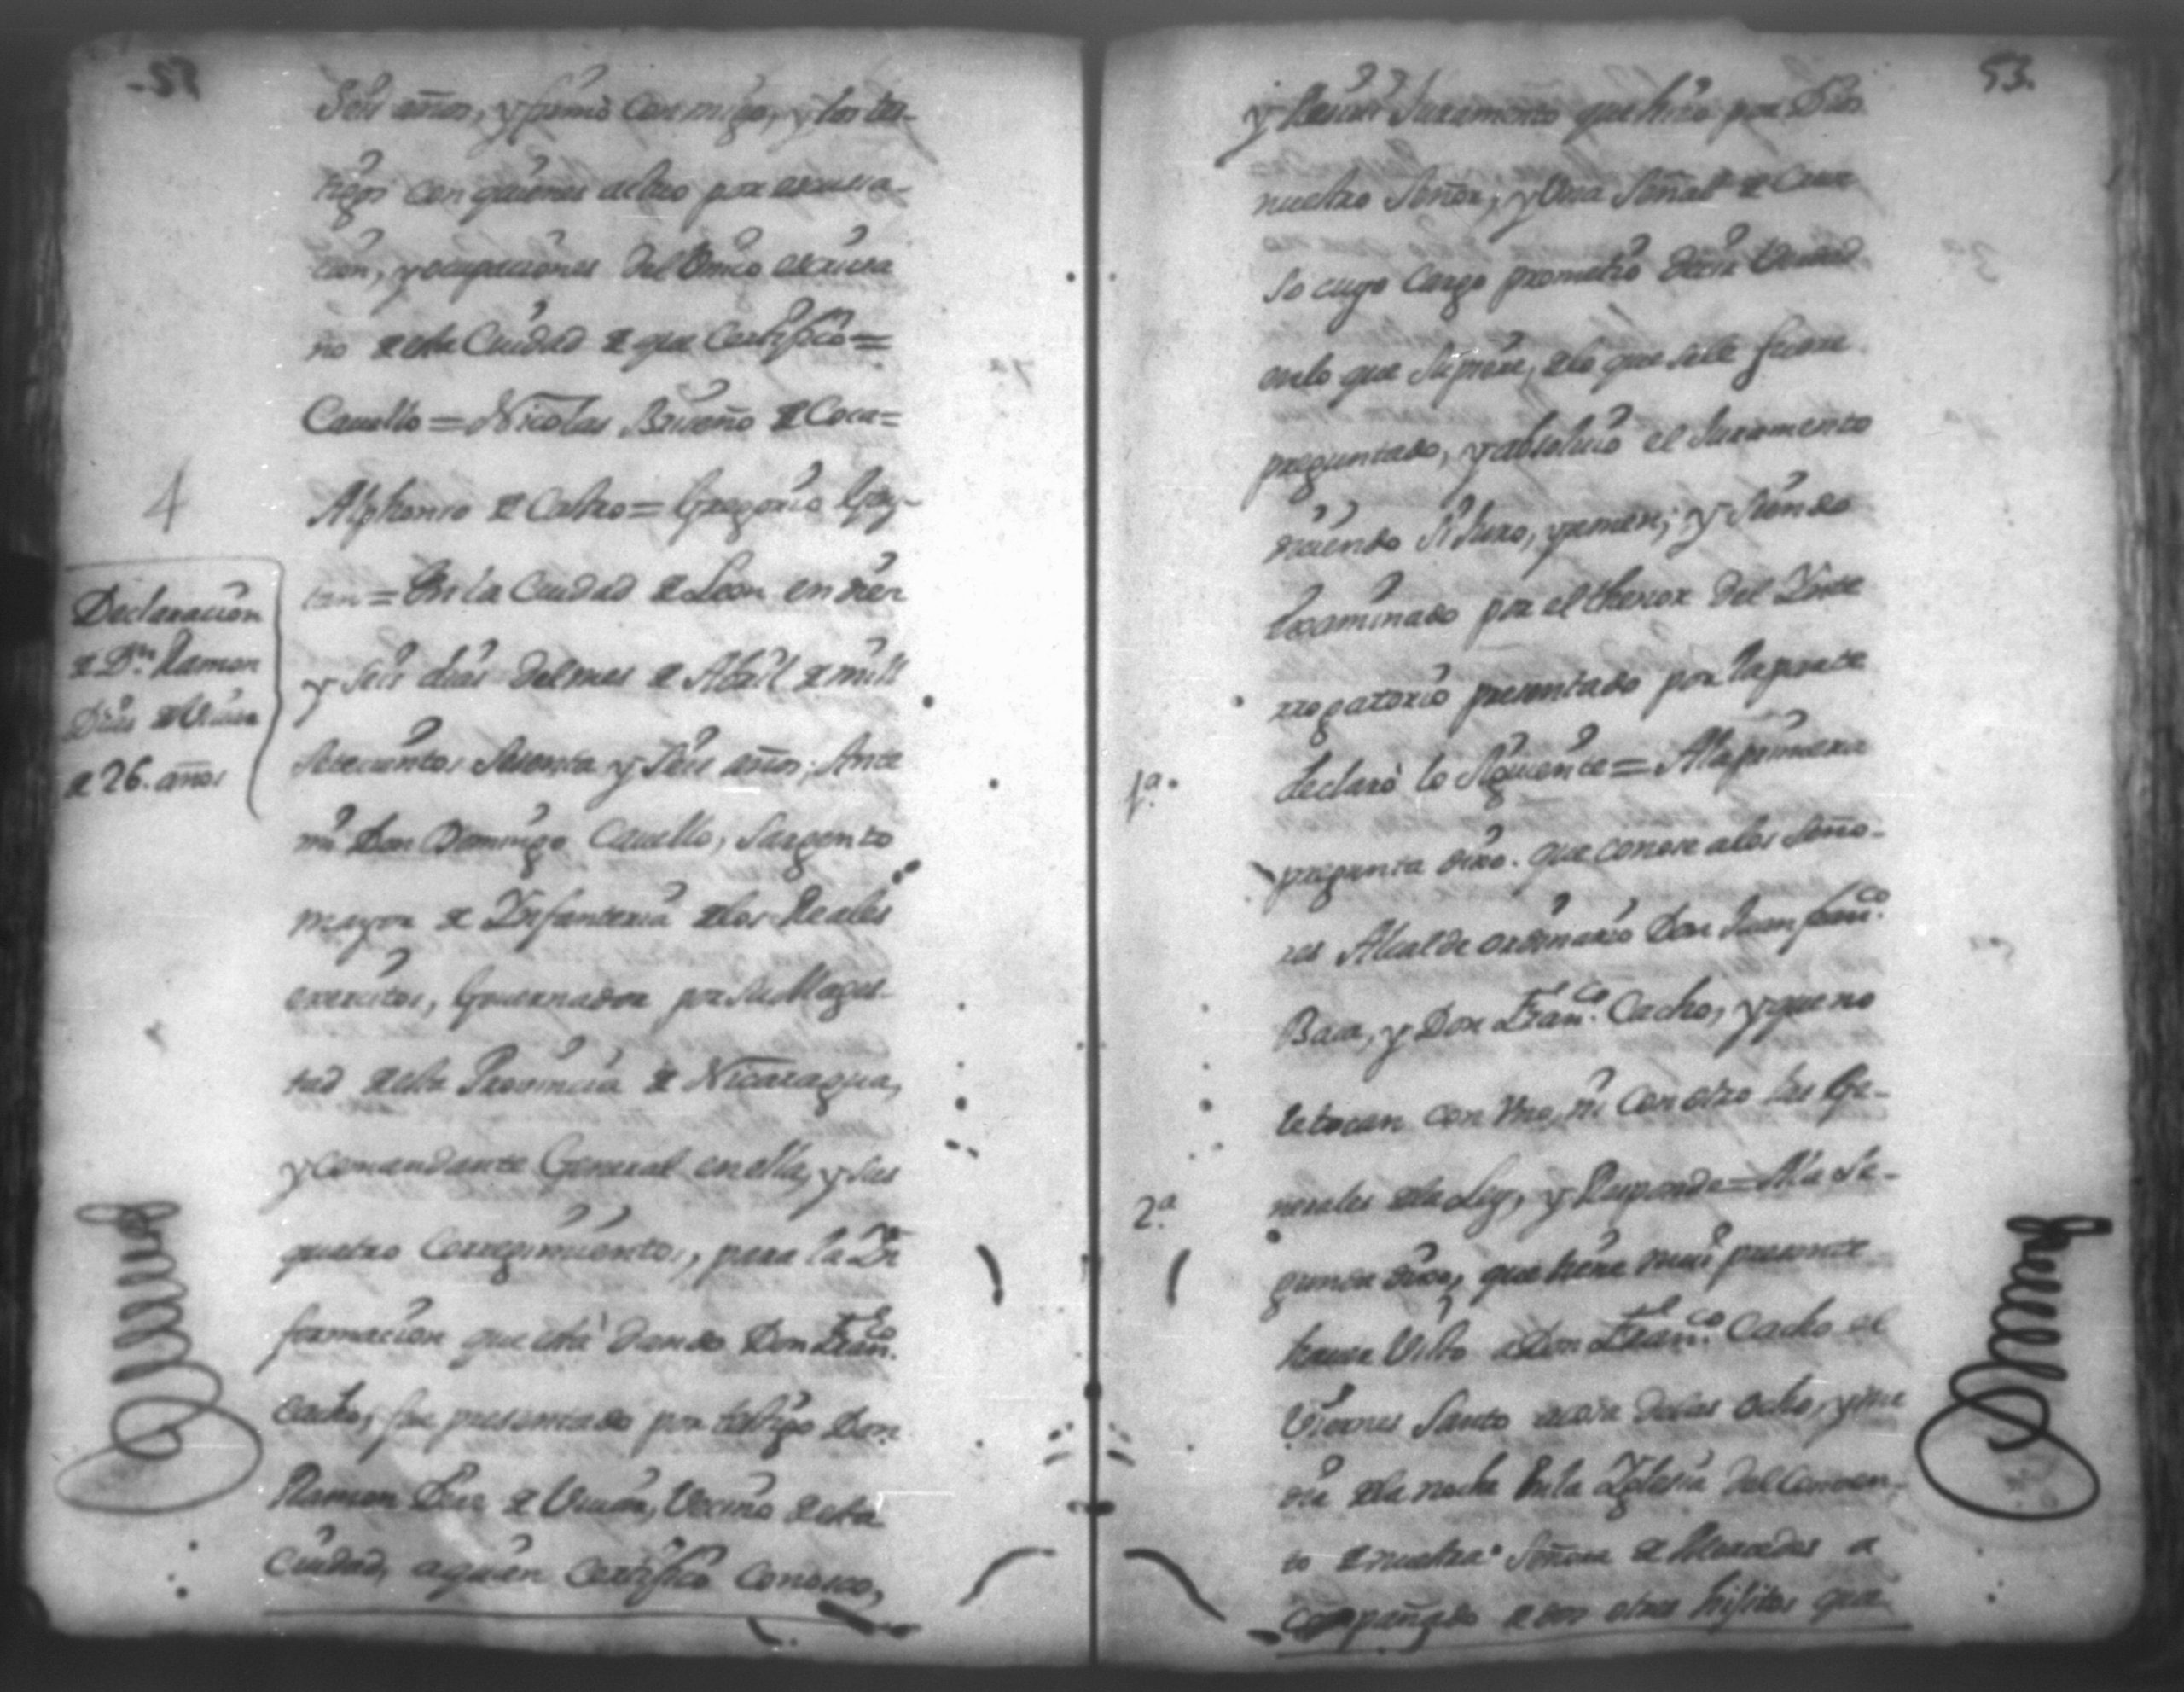 52.
Seis años, y firmò conmigo, y los tes-
tigos con quienes actuo por escusa-
cion, y ocupaciones del Vnico escriva
no de esta Ciudad de que Certifico =
Cauello = Nicolas Briseño de Coca =
Alphonso de Castro = Gregorio Gay-
tan = En la Ciudad de Leon en diez
y Seis dias del mes de Abril de mill
Setecientos Sesenta y Seis años; Ante
mi Don Domingo Cauello, Sargento
mayor de Infanteria de los Reales
exercitos, Gouernador por su Mages-
tad de esta Provincia de Nicaragua,
y Comandante General en ella, y sus
quatro Corregimientos, para la In
formacion que està dando Don Fran.co
Cacho, fue presentado por testigo Don
Ramon Dias de Viuar, Vecino de esta
Ciudad, a quien Certifico Conosco,
4
Declaracion
de D.n Ramon
Dias de Viuar
de 26. años
53.
y Reciui Juramento que hizo por Dios
nuestro Señor, y Vna Señal de Cruz
so cuyo Cargo prometiò decir Verdad
en lo que Supiere, de lo que se le fuere
preguntado, y absoluio el Juramento
diciendo Si Juro, y amen; y Siendo
Examinado por el thenor del Inte
rrogatorio presentado por la parte
1.a
declarò lo Siguiente = A la primera
pregunta dixo. que conose a los Seño-
res Alcalde ordinario Don Juan Fran.co
Baca, y Don Fran.co Cacho, y que no
le tocan con Vno, ni con otro las Ge-
2.a
nerales de la Ley, y Responde = A la Se-
gunda dixo, que tiene mui presente
hauer Visto a Don Fran.co Cacho el
Viernes Santo acosa de las ocho, y me
dia de la noche En la Iglesia del Conven-
to de nuestra Señora de Mercedes a
compañado de dos otres hijitos que